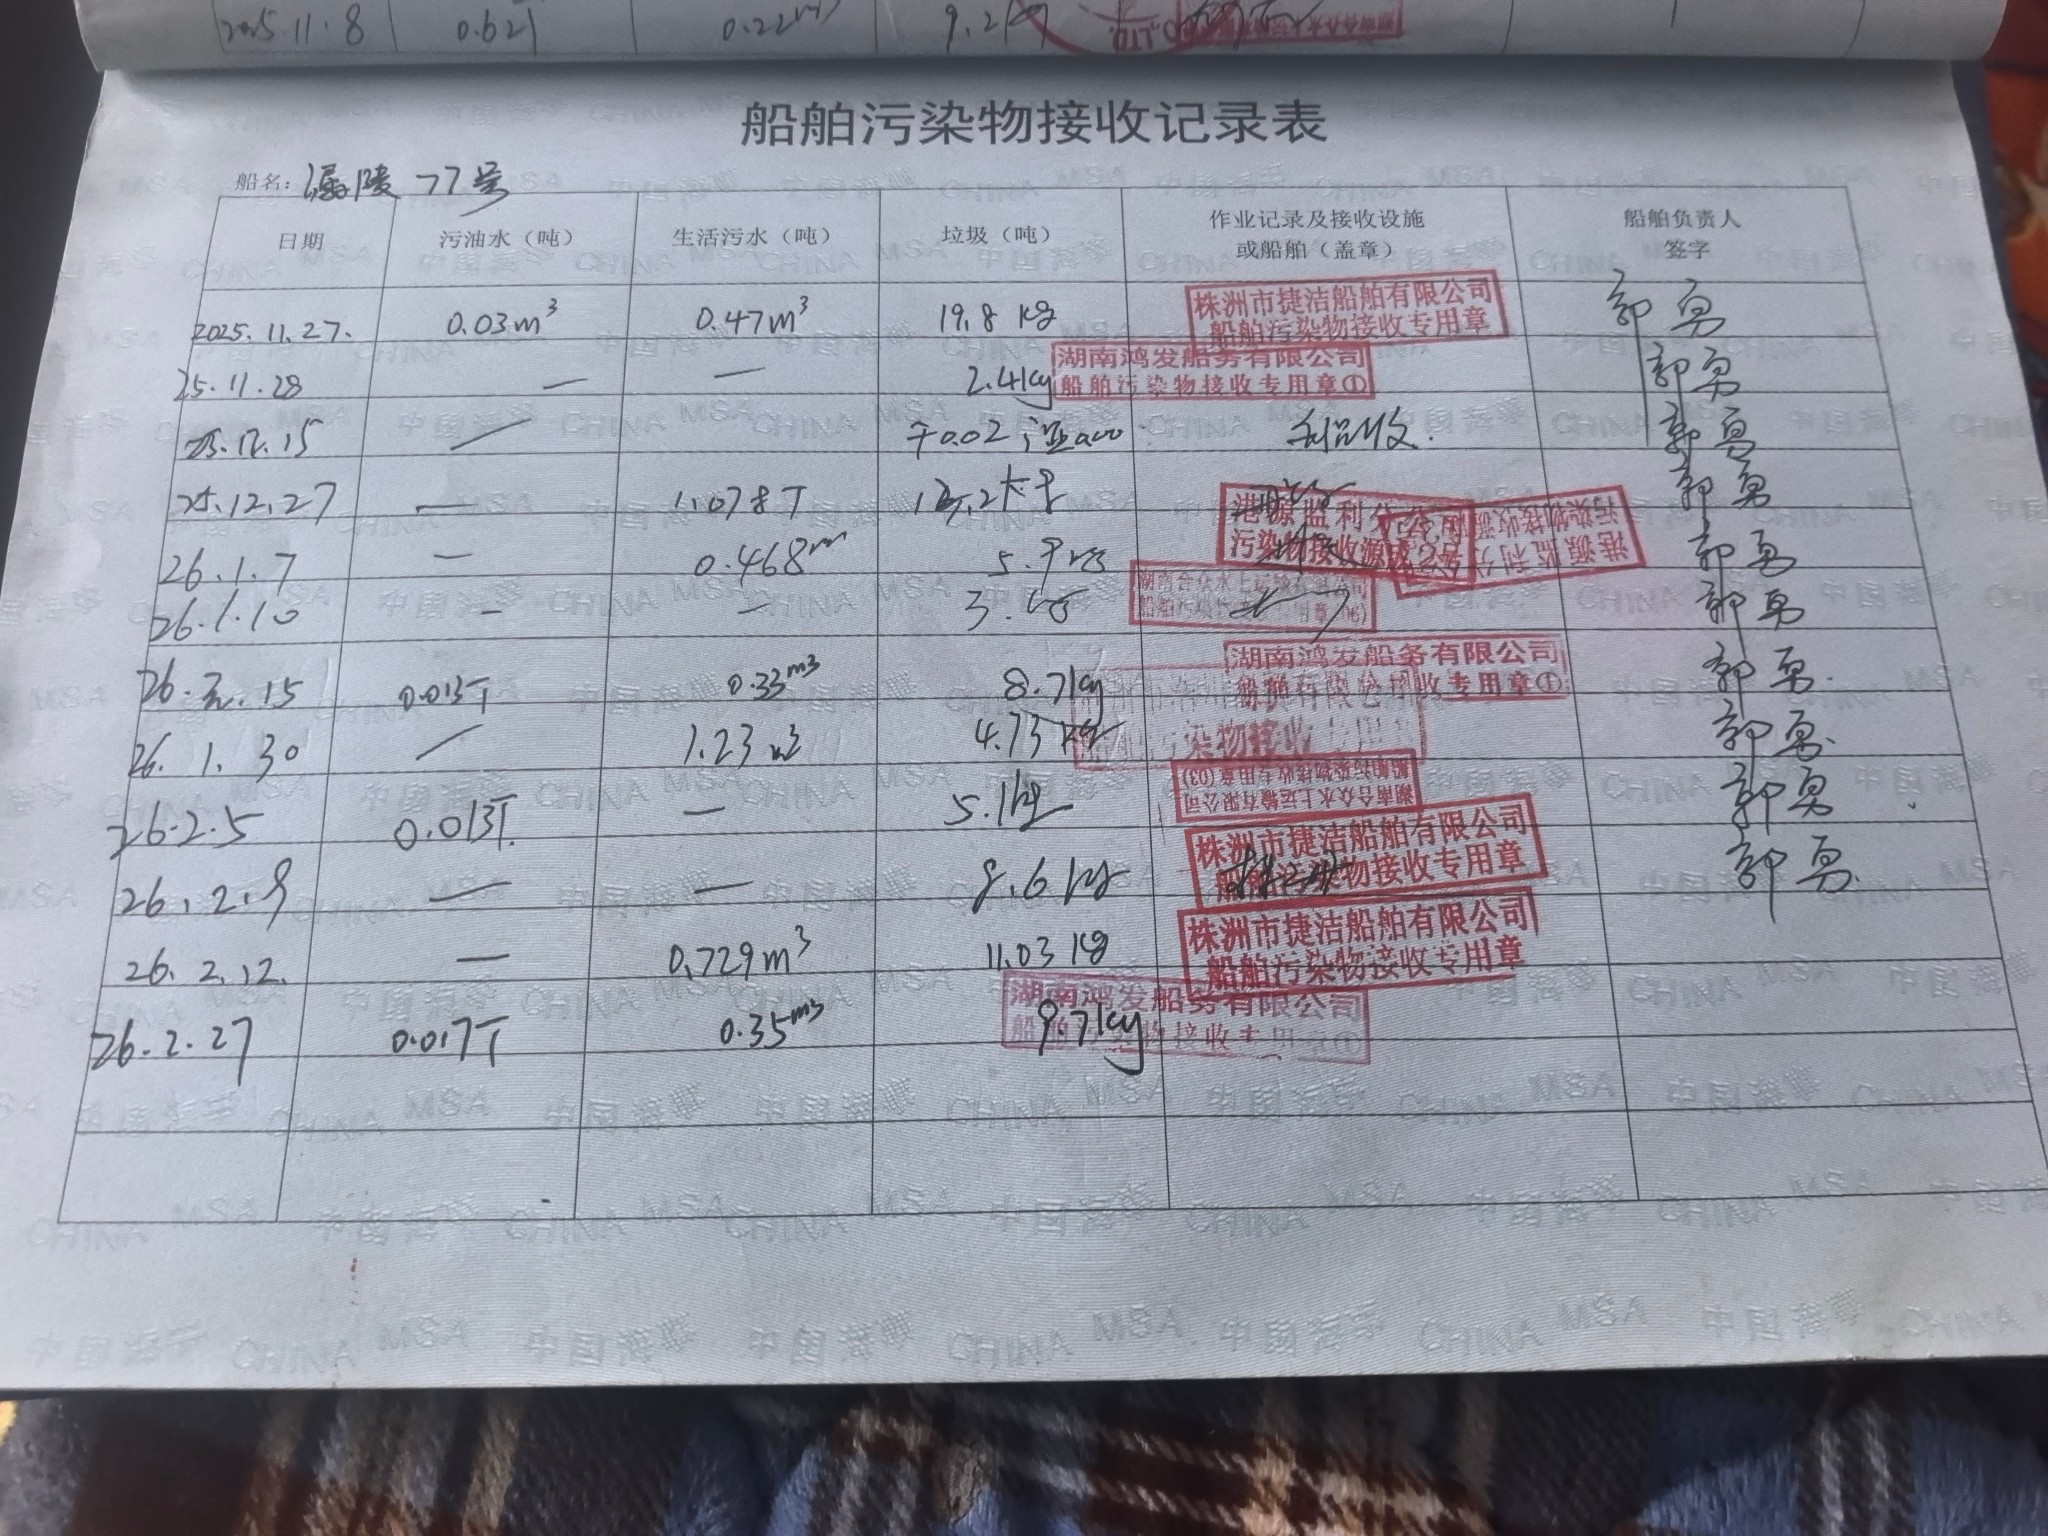 2025.11.8 0.62T 0.22m³ 9.2kg
船舶污染物接收记录表
船名: 77号
日期 污油水（吨） 生活污水（吨） 垃圾（吨） 作业记录及接收设施 船舶负责人
或船舶（盖章） 签字
2025.11.27. 0.03m³ 0.47m³ 19.8kg 株洲市捷洁船舶有限公司 郭勇
船舶污染物接收专用章
25.11.28 — — 2.4kg 湖南鸿发船务有限公司 郭勇
船舶污染物接收专用章①
25.12.15 — 郭勇
25.12.27 — 1.078T 港源监利分公司 郭勇
26.1.7 — 0.468m 5.9kg 污染物接收 郭勇
26.1.10 — — 湖南合众水上运输有限公司 郭勇
26.元.15 0.013T 0.33m³ 8.7kg 湖南鸿发船务有限公司 郭勇
接收专用章①
26.1.30 — 1.23m³ 4.73kg 污染物接收专用 郭勇
26.2.5 0.013T — 5.1kg 湖南合众水上运输有限公司 郭勇
船舶污染物接收专用章(03)
26.2.9 — — 株洲市捷洁船舶有限公司 郭勇
船舶污染物接收专用章
26.2.12. — 0.729m³ 11.03kg 株洲市捷洁船舶有限公司
船舶污染物接收专用章
26.2.27 0.017T 0.35m³ 9.7kg 湖南鸿发船务有限公司
中国海事 CHINA MSA